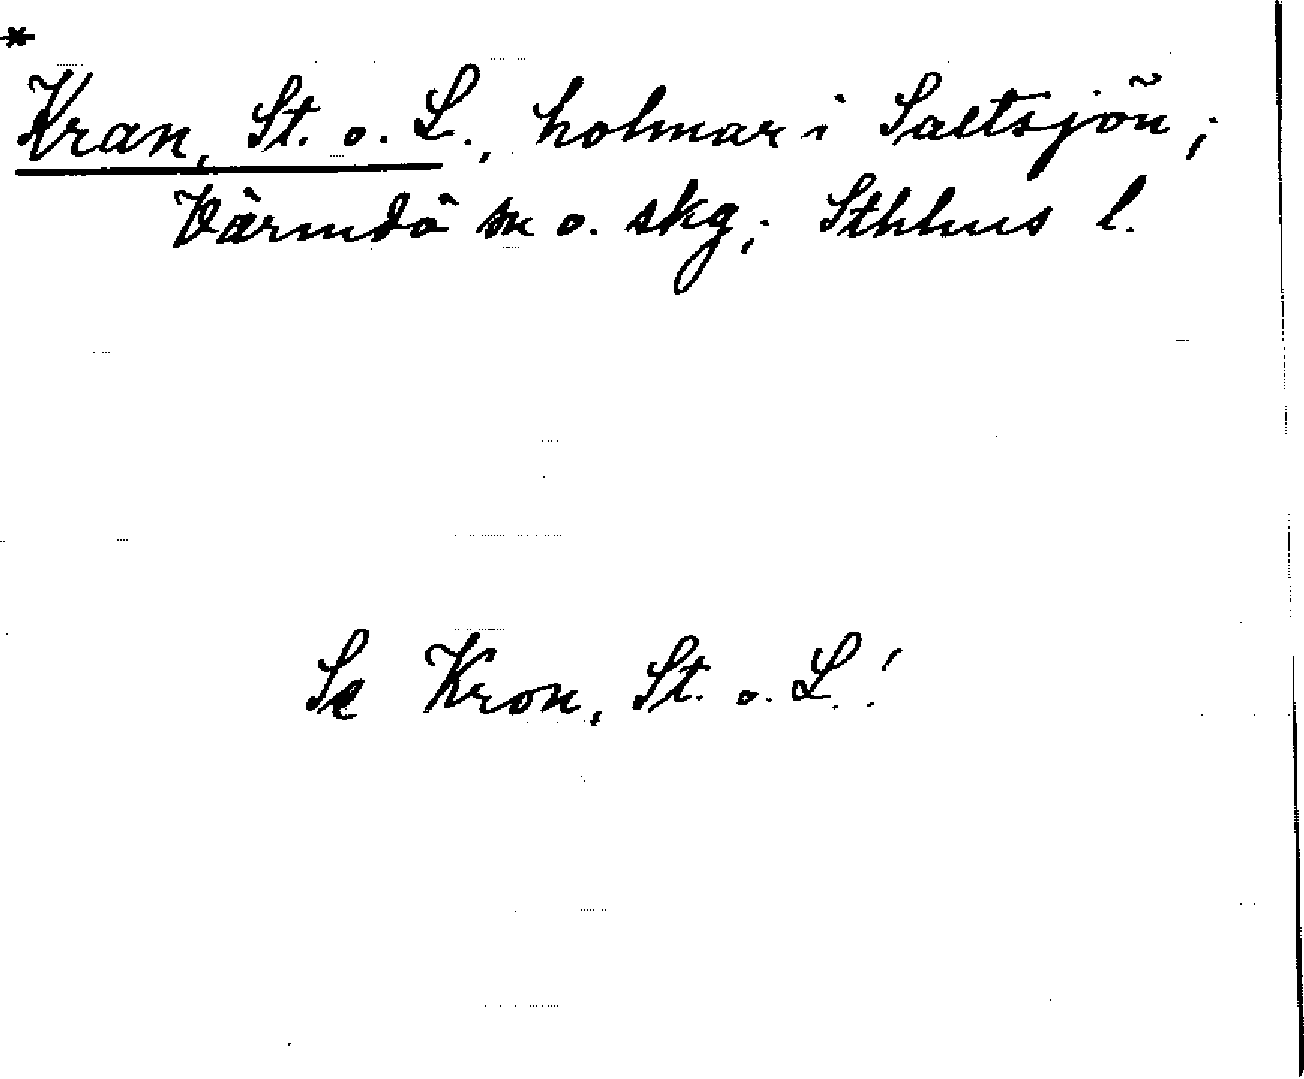 *
Kran, St. o. L., holmar i Saltsjön;
Värmdö sn o. skg; Sthlms l.
Se Kron, St. o. L.!